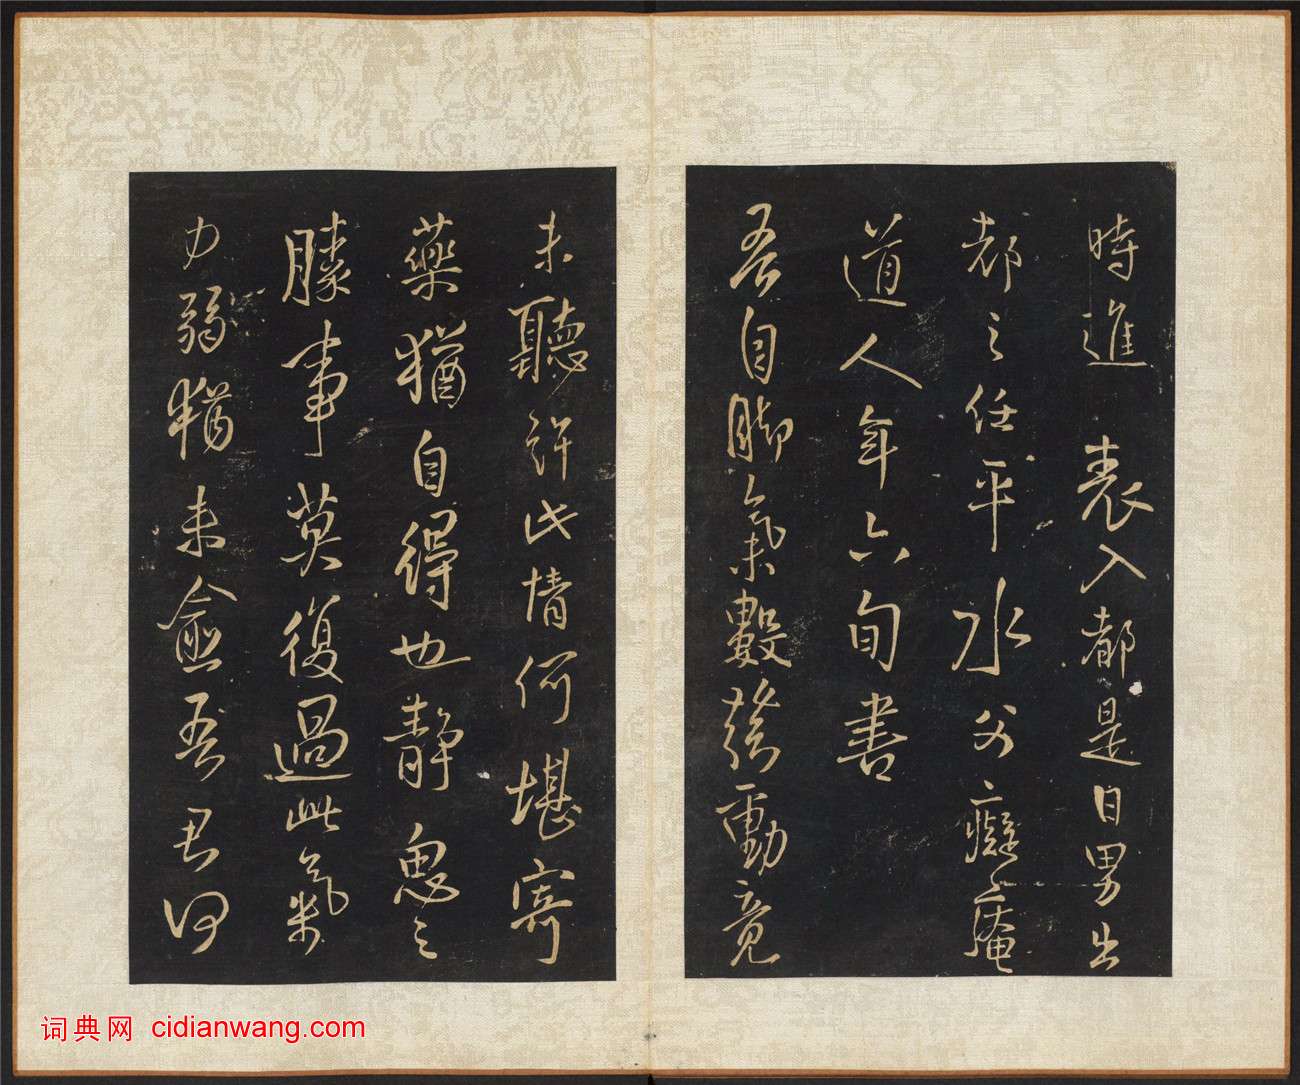 時進 表入都是日男出
都之任平水父癡庵
道人年六旬書
吾自脚氣數發動竟
未聽許此情何堪寄
藥猶自得也靜思之
膝事莫復過此氣
力弱猶未愈吾君何
词典网 cidianwang.com